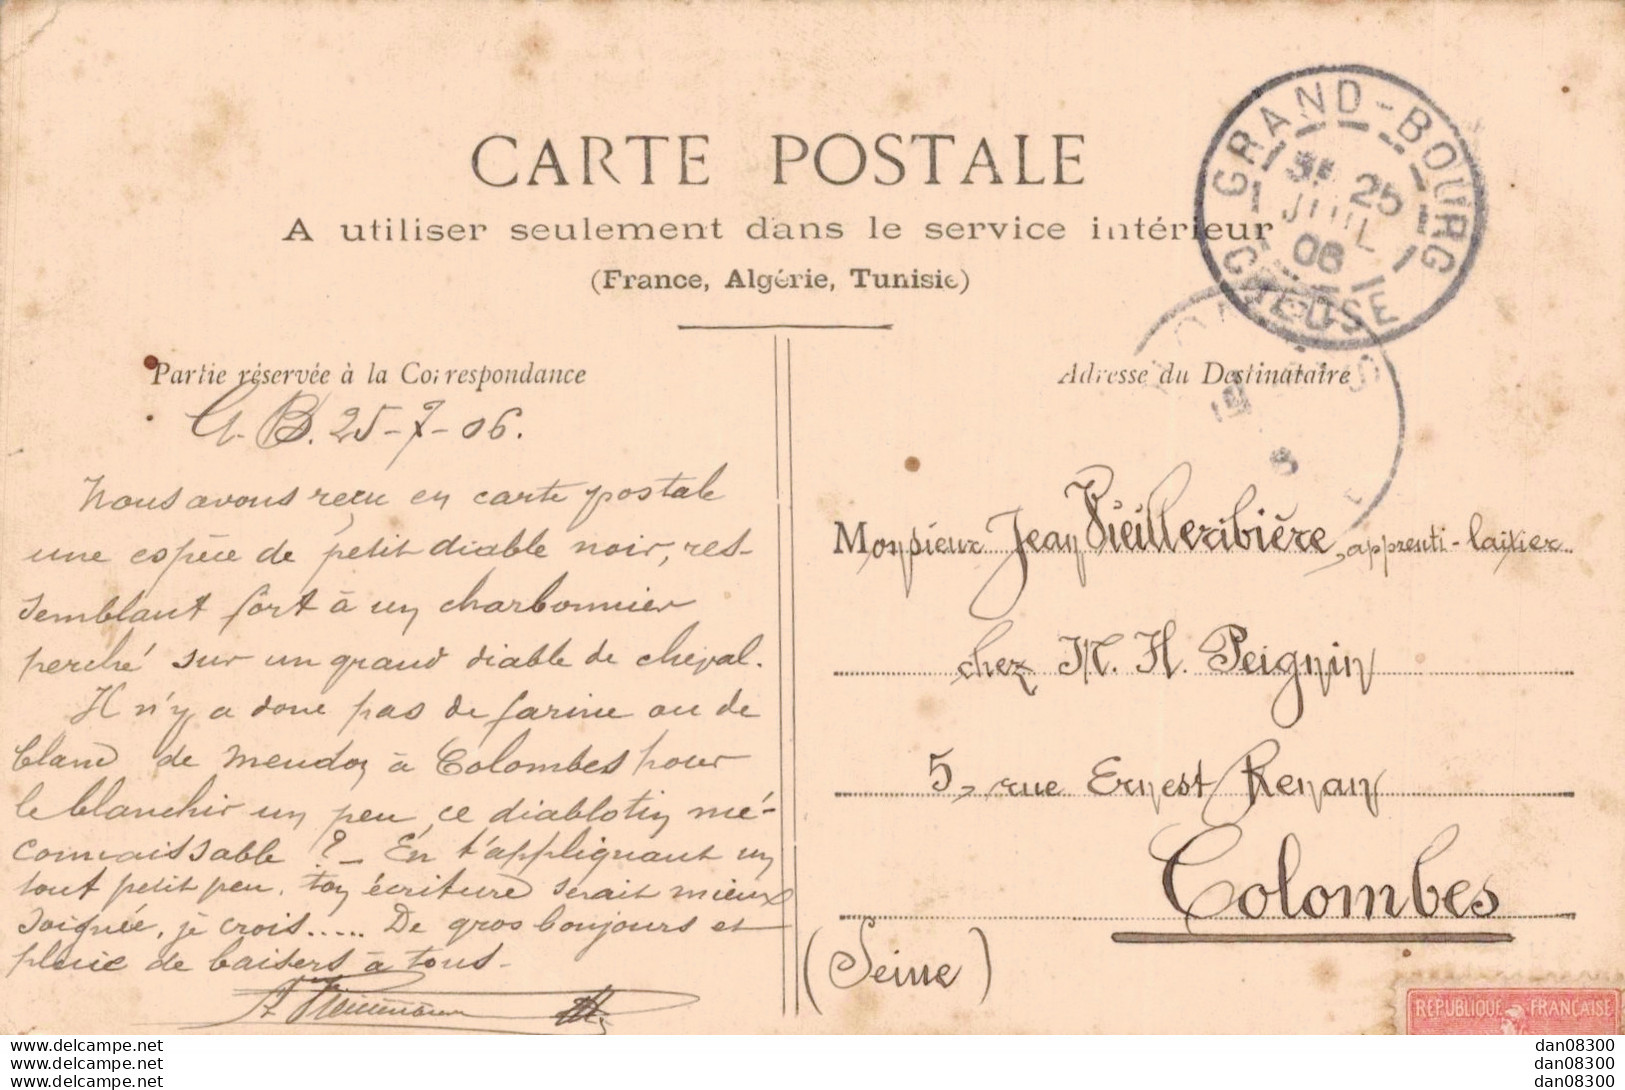 CARTE POSTALE
A utiliser seulement dans le service intérieur
(France, Algérie, Tunisie)
GRAND-BOURG
25
JUIL
06
CREUSE
Partie réservée à la Correspondance
G. B. 25-7-06.
Nous avons reçu en carte postale
une espèce de petit diable noir, res-
semblant fort à un charbonnier
perché sur un grand diable de cheval.
Il n'y a donc pas de farine ou de
blanc de Meudon à Colombes pour
le blanchir un peu, ce diablotin mé-
connaissable ? - En t'appliquant un
tout petit peu, ton écriture serait mieux
soignée, je crois..... De gros bonjours et
pluie de baisers à tous.
Adresse du Destinataire
Monsieur Jean Vieilleribière, apprenti-laitier
chez M. H. Peignin
5, rue Ernest Renan
Colombes
(Seine)
REPUBLIQUE FRANÇAISE
dan08300 dan08300
dan08300 dan08300
dan08300 dan08300